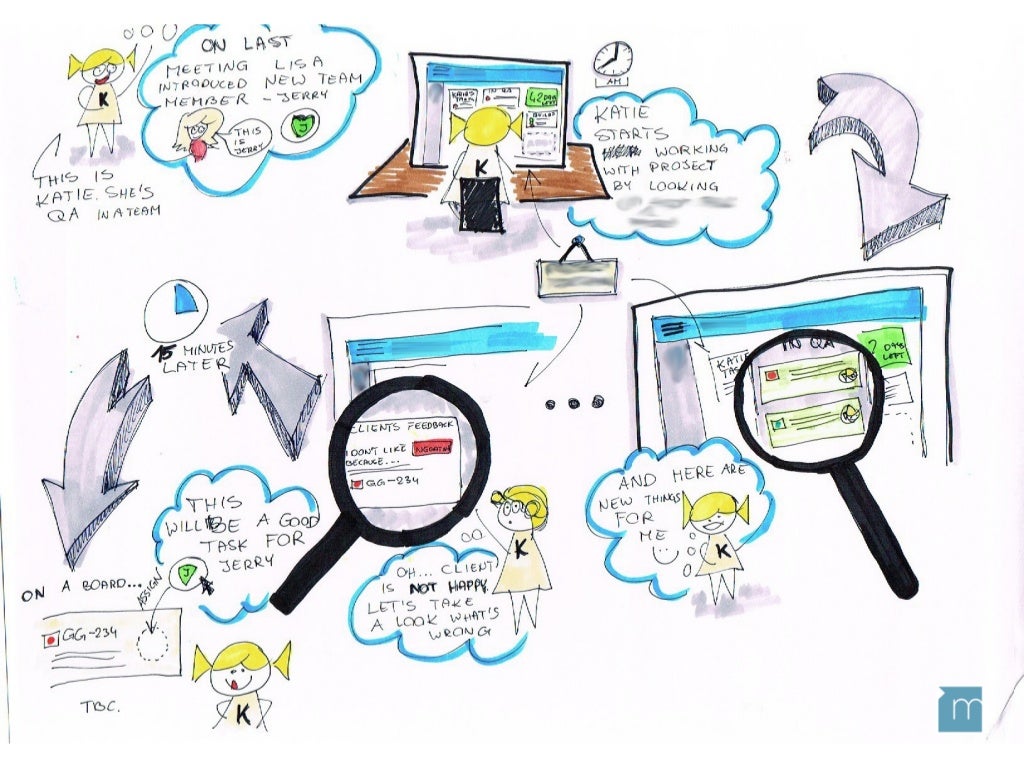 ON LAST
MEETING LISA
INTRODUCED NEW TEAM
MEMBER - JERRY
THIS
IS
JERRY
J
K
THIS IS
KATIE. SHE'S
QA IN A TEAM
AM
KATIE
STARTS
WORKING
WITH PROJECT
BY LOOKING
IN QA
DAYS
LEFT
K
IN QA
? DAYS
LEFT
AND HERE ARE
NEW THINGS
FOR
ME
K
CLIENTS FEEDBACK
I DON'T LIKE
BECAUSE...
GG-234
OH... CLIENT
IS NOT HAPPY
LET'S TAKE
A LOOK WHAT'S
WRONG
K
15 MINUTES
LATER
THIS
WILL BE A GOOD
TASK FOR
JERRY
J
ON A BOARD...
ASSIGN
GG-234
TBC.
K
m